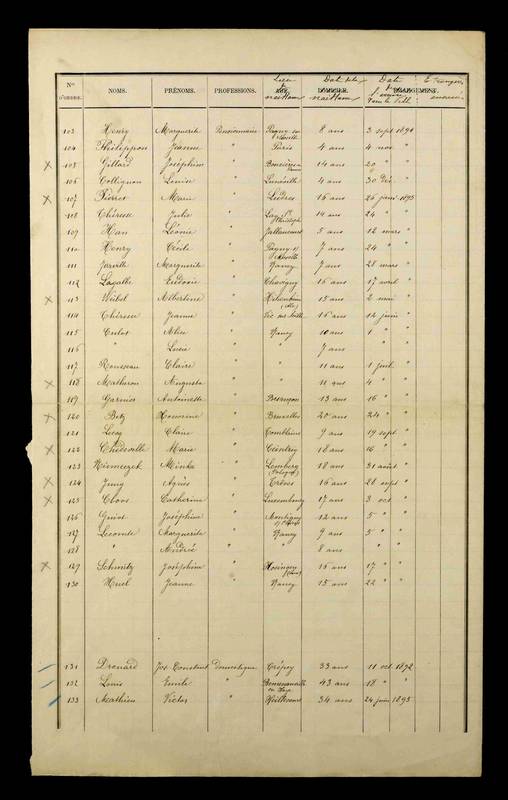 Nos D'ORDRE. NOMS. PRÉNOMS. PROFESSIONS. Lieu de naissance Date de la naissance Date de l'arrivée dans la Ville Etranger
RUE. DOMICILE. DÉLARGEMENT.
103 Henry Marguerite Pensionnaire Pagny sur Moselle 8 ans 3 sept 1894
104 Philippon Jeanne " Paris 4 ans 4 nov "
105 Gillard Joséphine " 14 ans 20 " "
106 Collignon Louise " Lunéville 4 ans 30 Déc "
107 Pierrot Marie " Ludres 16 ans 26 janv 1895
108 Thérèse Julie " Lay St Christophe 14 ans 24 " "
109 Han Léonie " Jallaucourt 5 ans 12 mars "
110 Henry Cécile " Pagny s/ Moselle 7 ans 24 " "
111 Marguerite " Nancy 7 ans 28 mars "
112 Lagalle " Chavigny 16 ans 17 avril "
113 Weibel Albertine " 15 ans 2 mai "
114 Thérèse Jeanne " Vic sur Seille 16 ans 12 juin "
115 Alice " Nancy 10 ans 1 " "
116 " Lucie " " 7 ans " "
117 Rousseau Claire " " 11 ans 1 juil "
118 Mathuron Augusta " " 11 ans 4 " "
119 Garnier Antoinette " Besançon 13 ans 16 " "
120 Betz Honorine " Bruxelles 20 ans 24 " "
121 Lecoq Claire " Tomblaine 9 ans 19 sept "
122 Marie " 18 ans 16 " "
123 Niemeczek Minka " Lemberg (Pologne) 18 ans 31 août "
124 Jung Agnès " Trèves 16 ans 26 sept "
125 Cloos Catherine " Luxembourg 17 ans 3 oct "
126 Guiot Joséphine " Montigny 12 ans 5 " "
127 Lecomte Marguerite " Nancy 9 ans 5 " "
128 " André " 8 ans " "
129 Schmitz Joséphine " Hosingen 15 ans 17 " "
130 Huel Jeanne " Nancy 15 ans 22 " "
131 Drouard Jos. Constant Domestique Crépey 33 ans 11 oct 1892
132 Louis Emile " 43 ans 18 " "
133 Mathieu Victor " 34 ans 24 janv 1895